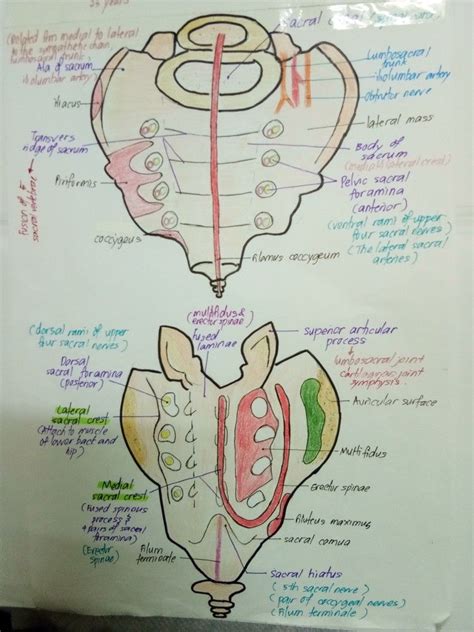 37 years
Sacral canal
(Related from medial to lateral
to the sympathetic chain,
lumbosacral trunk
iliolumbar artery
Ala of sacrum
Lumbosacral
trunk
Iliolumbar artery
Obturator nerve
Iliacus
lateral mass
Transvers
ridge of sacrum
Body of
sacrum
(medial lateral crest)
Piriformis
Pelvic sacral
foramina
(anterior)
Fusion of
sacral vertebrae
(ventral rami of upper
four sacral nerves)
(The lateral sacral
arteries)
coccygeus
filumus coccygeum
(multifidus &
erector spinae)
fused
laminae
(dorsal rami of upper
four sacral nerves)
superior articular
process
Dorsal
sacral foramina
(posterior)
lumbosacral joint
cartilaginous joint
symphysis
Auricular surface
Lateral
sacral crest
(Attach to muscle
of lower back and
hip)
Multifidus
Medial
sacral crest
(Fused spinous
process &
4 pairs of sacral
foramina)
(Erector
spinae)
Erector spinae
Gluteus maximus
sacral cornua
filum
terminale
Sacral hiatus
(5th sacral nerve)
(pair of coccygeal nerves)
(Filum terminale)